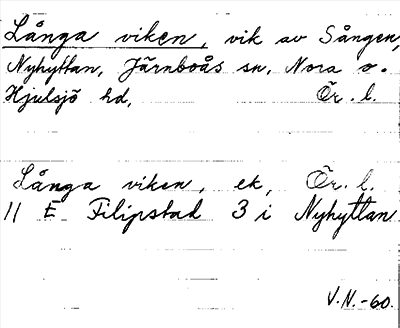 Långa viken, vik av Sången,
Nyhyttan, Järnboås sn, Nora o.
Hjulsjö hd, Ör. l.
Långa viken, ek, Ör. l.
11 E Filipstad 3 i Nyhyttan
V.N.-60.